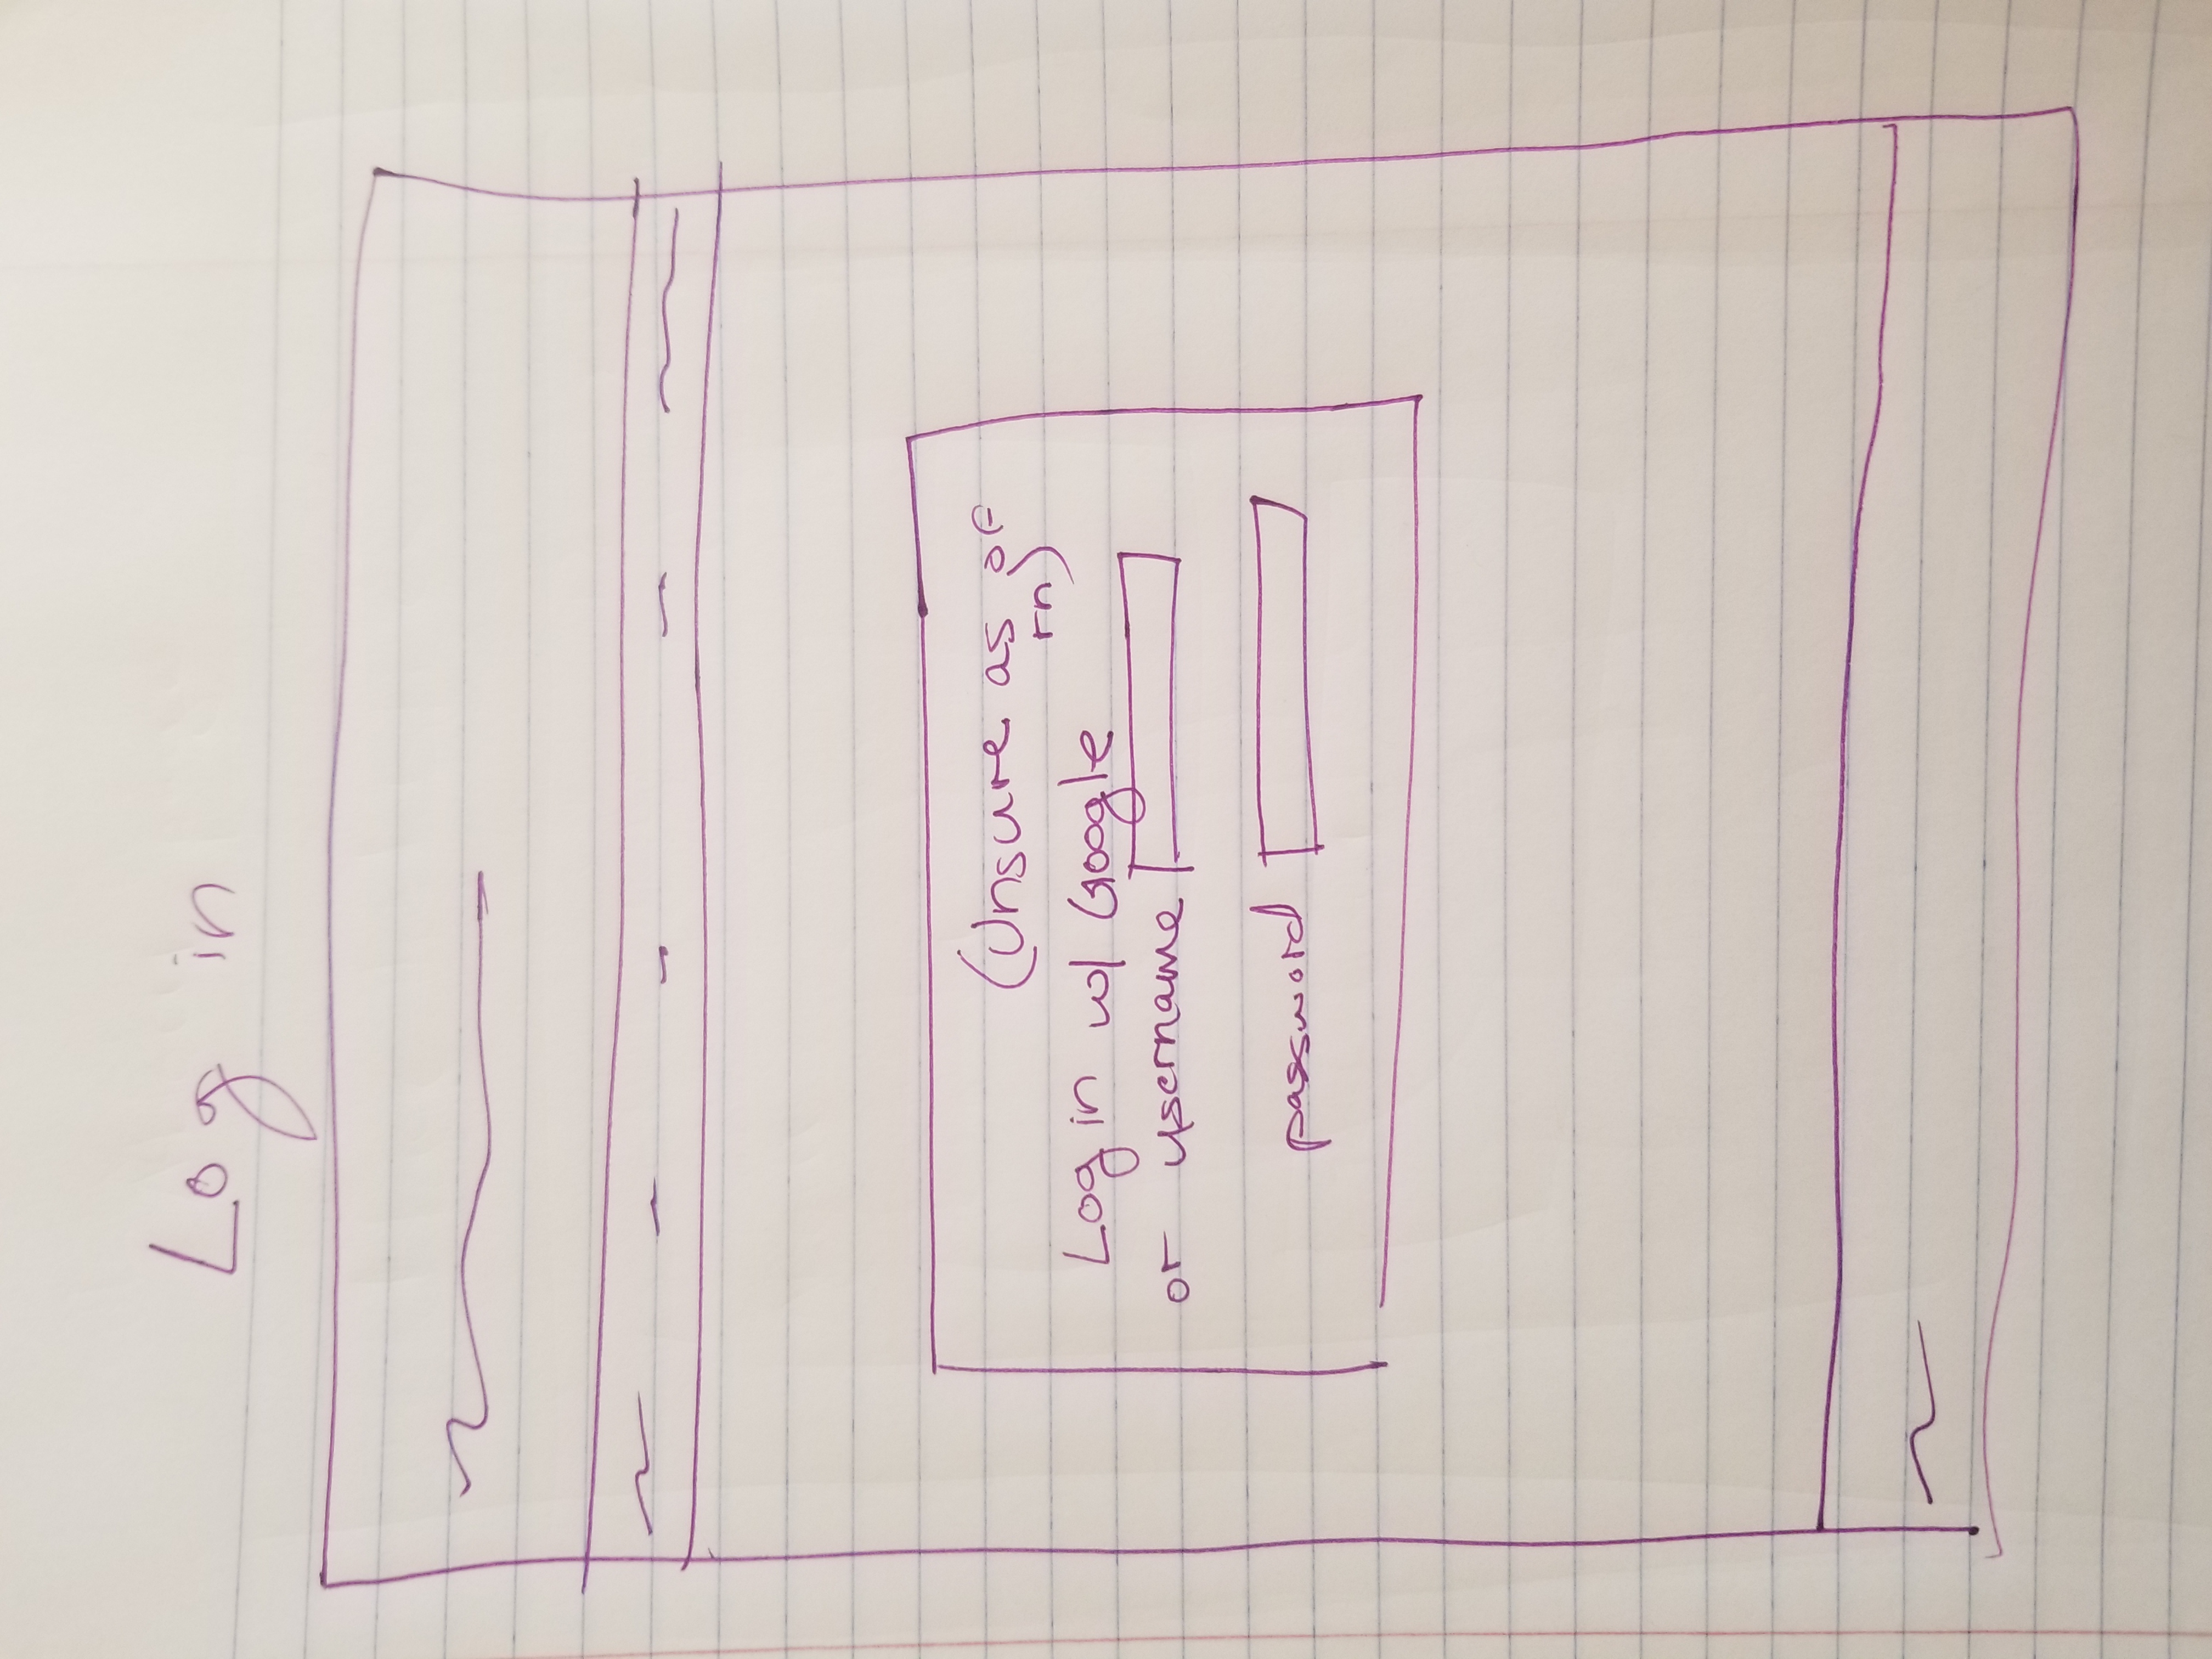 Log in
(Unsure as of
rn)
Log in w/ Google
or username
password